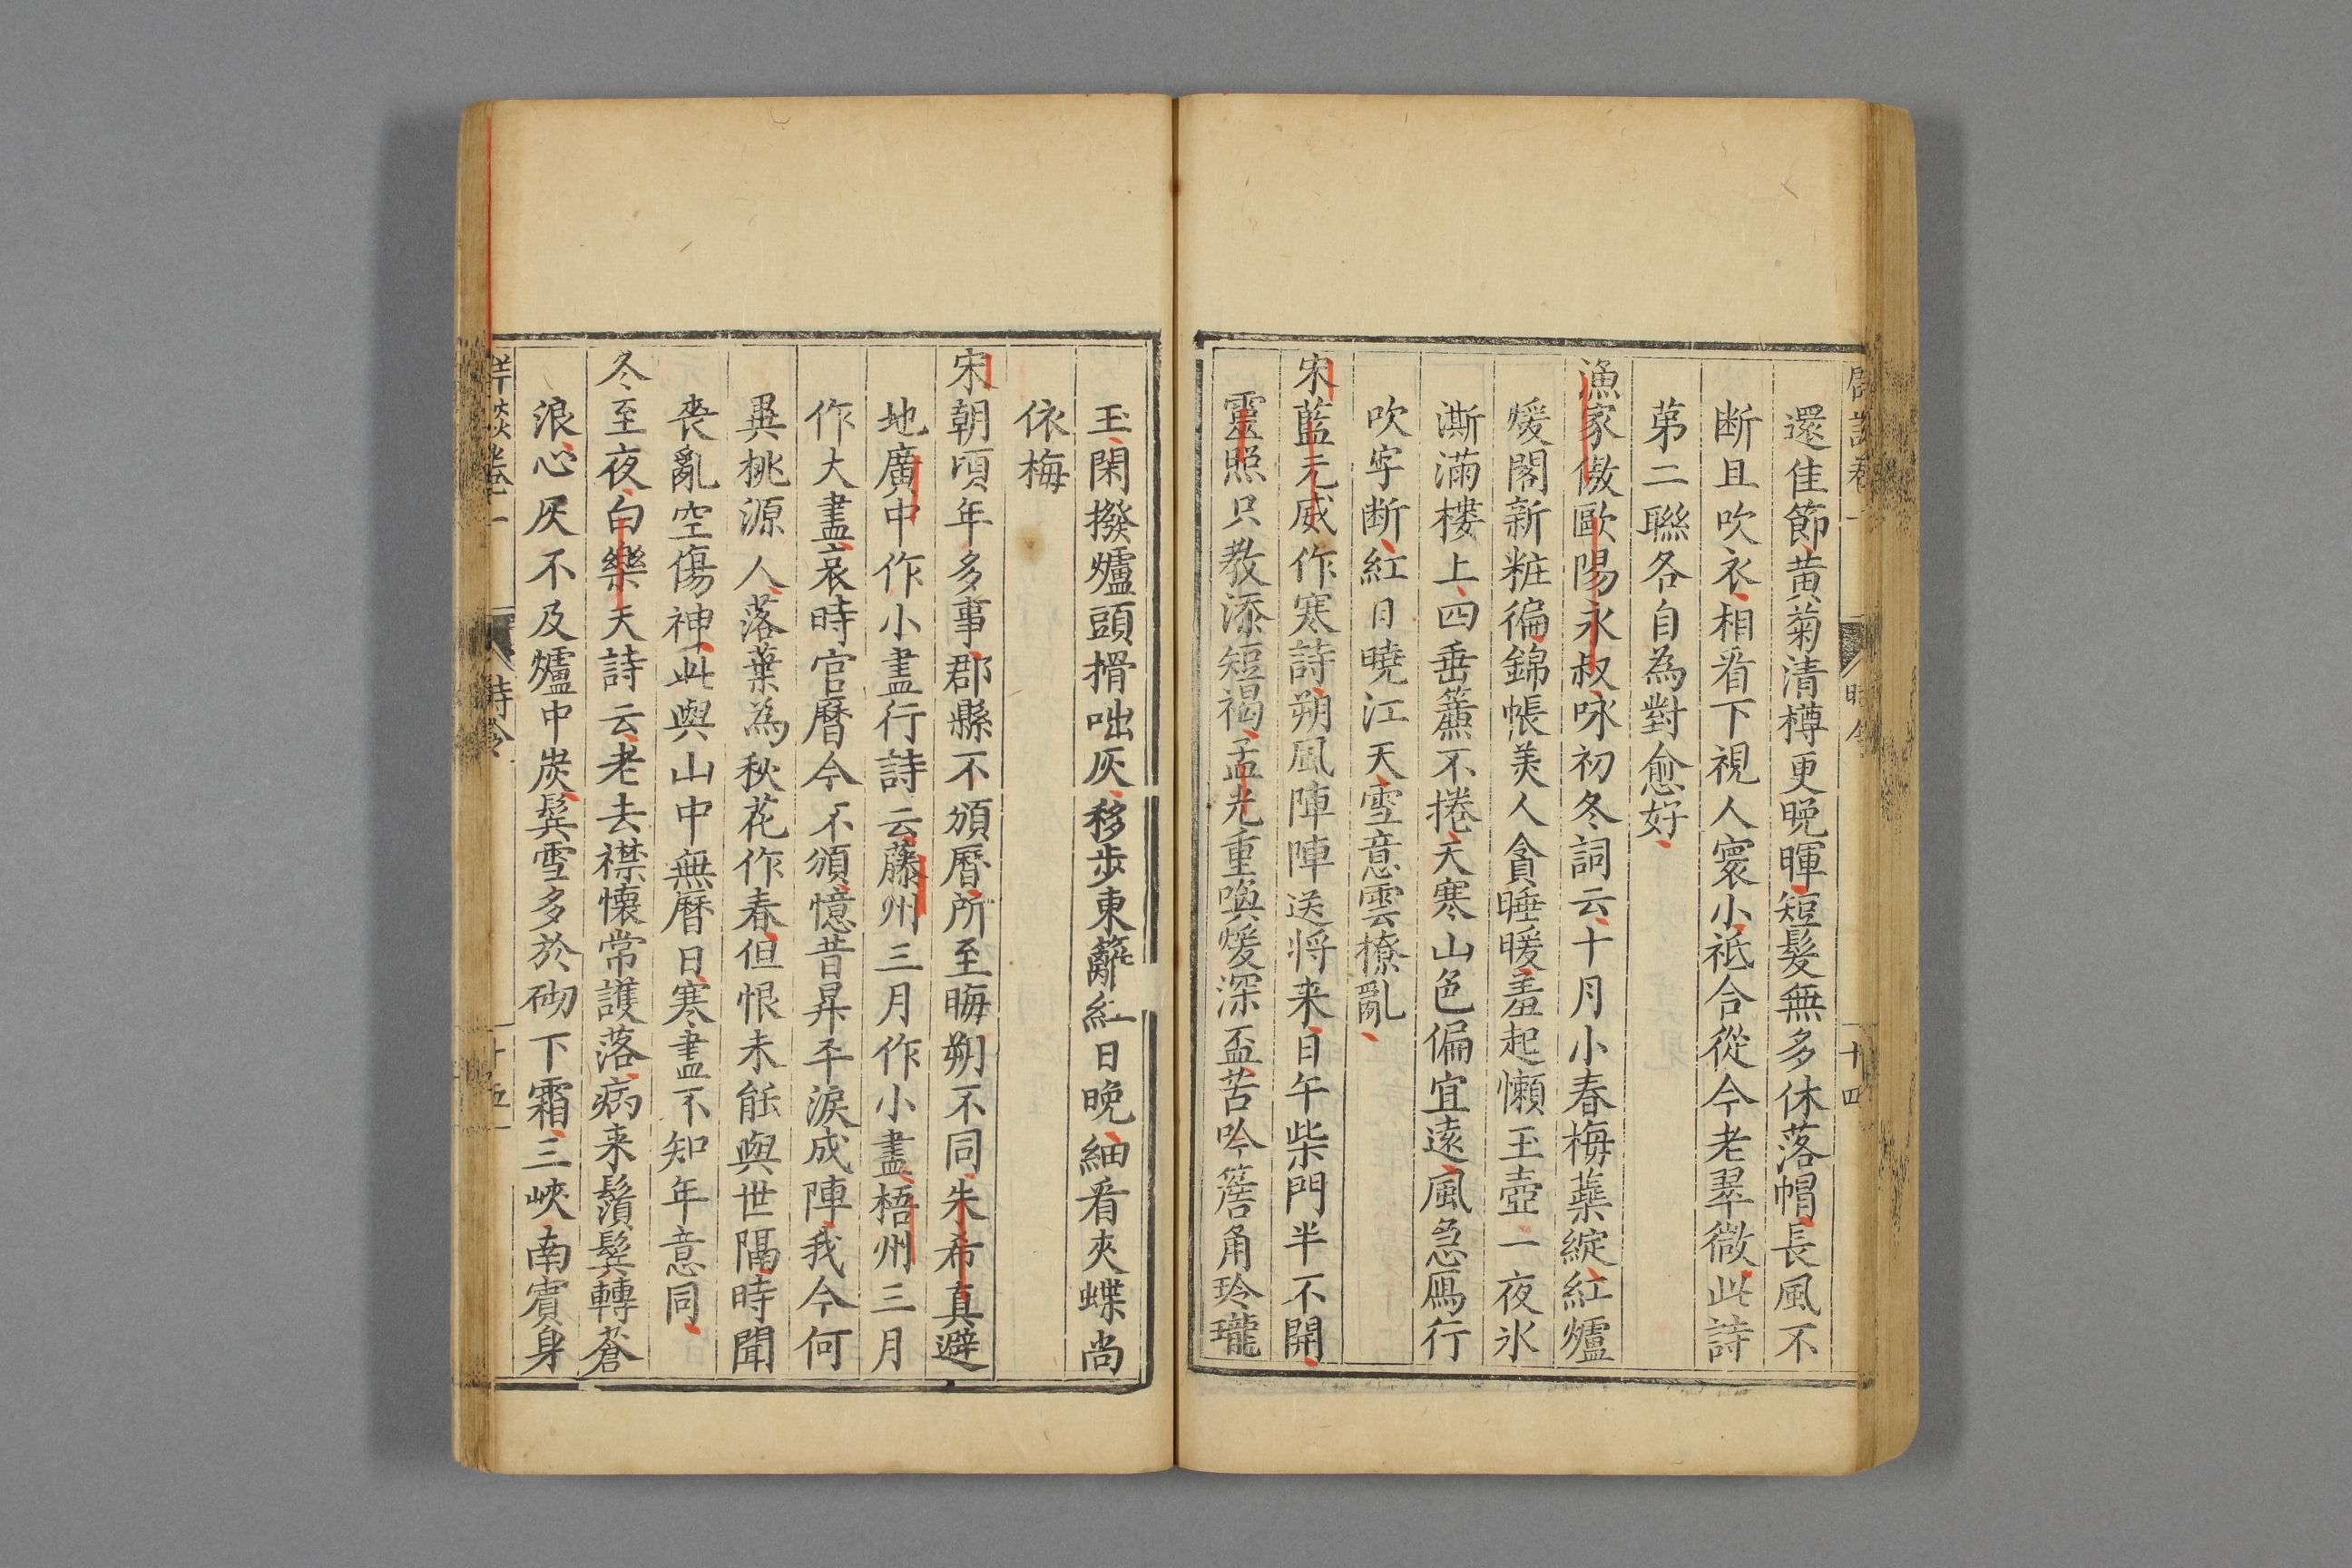 還佳節黃菊清樽更晚暉短髮無多休落帽長風不
断且吹衣相看下視人寰小祗合從今老翠微此詩
第二聯各自為對愈好
漁家傲歐陽永叔咏初冬詞云十月小春梅蘂綻紅爐
煖閣新粧徧錦帳美人貪睡暖羞起懶玉壺一夜氷
澌滿樓上四垂簾不捲天寒山色偏宜遠風急鴈行
吹字断紅日曉江天雪意雲撩亂
宋藍元威作寒詩朔風陣陣送将来日午柴門半不開
靈照只教添短褐孟光重喚煖深盃苦吟簷角玲瓏
玉閑撥爐頭榾咄灰移步東籬紅日晚細看夾蝶尚
依梅
宋朝頃年多事郡縣不頒曆所至晦朔不同朱希真避
地廣中作小盡行詩云藤州三月作小盡梧州三月
作大盡哀時官曆今不頒憶昔昇平淚成陣我今何
異桃源人落葉為秋花作春但恨未能與世隔時聞
喪亂空傷神此與山中無曆日寒盡不知年意同
冬至夜白樂天詩云老去襟懷常護落病来鬚鬢轉蒼
浪心灰不及爐中炭鬢雪多於砌下霜三峽南賓身